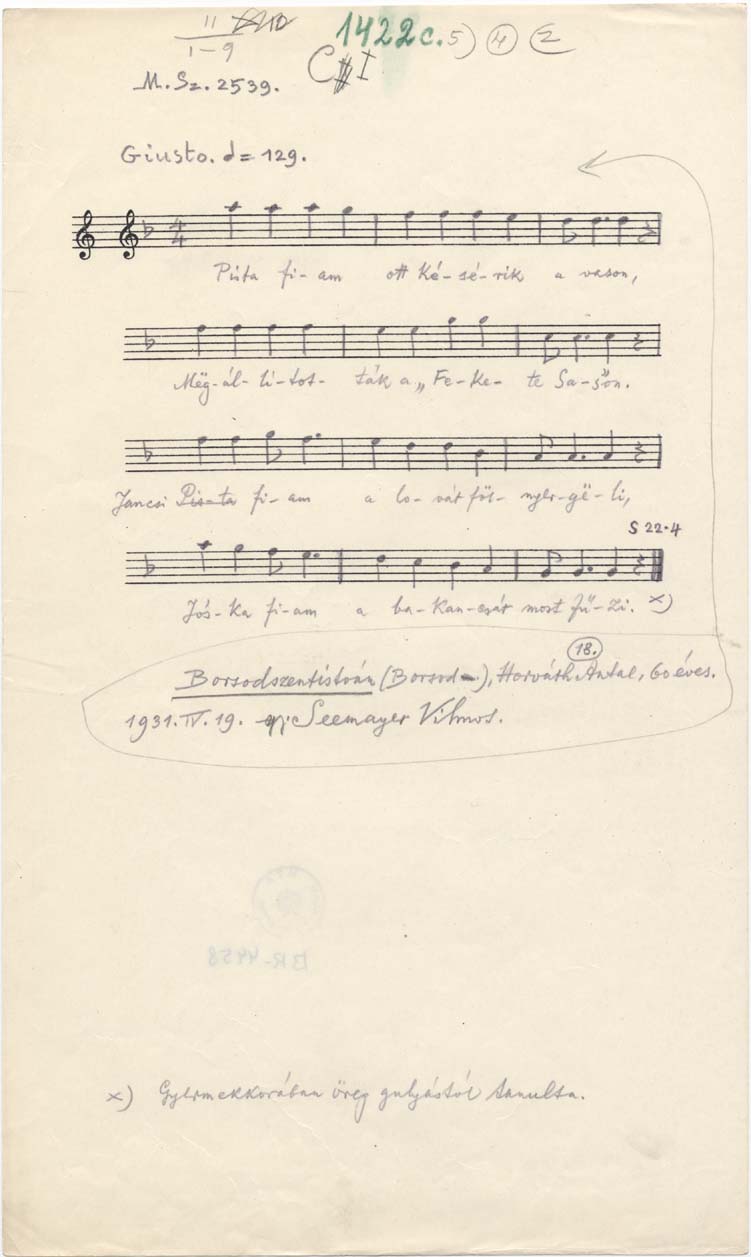 II
1-9
1422c. 5) 4 2
C I
M. Sz. 2539.
Giusto. d = 129.
4
4
Pista fi-am ott ké-sé-rik a vason,
Mëg-ál-li-tot-ták a „Fe-ke-te Sa-s"on.
Jancsi Pis-ta fi-am a lo-vát föl-nyer-gë-li,
S 22.4
Jós-ka fi-am a ba-kan-csát most fű-zi. x)
18.
Borsodszentistván (Borsod), Horváth Antal, 60 éves.
1931. IV. 19. gy: Seemayer Vilmos.
BR-4458
x) Gyermekkorában öreg gulyástól tanulta.